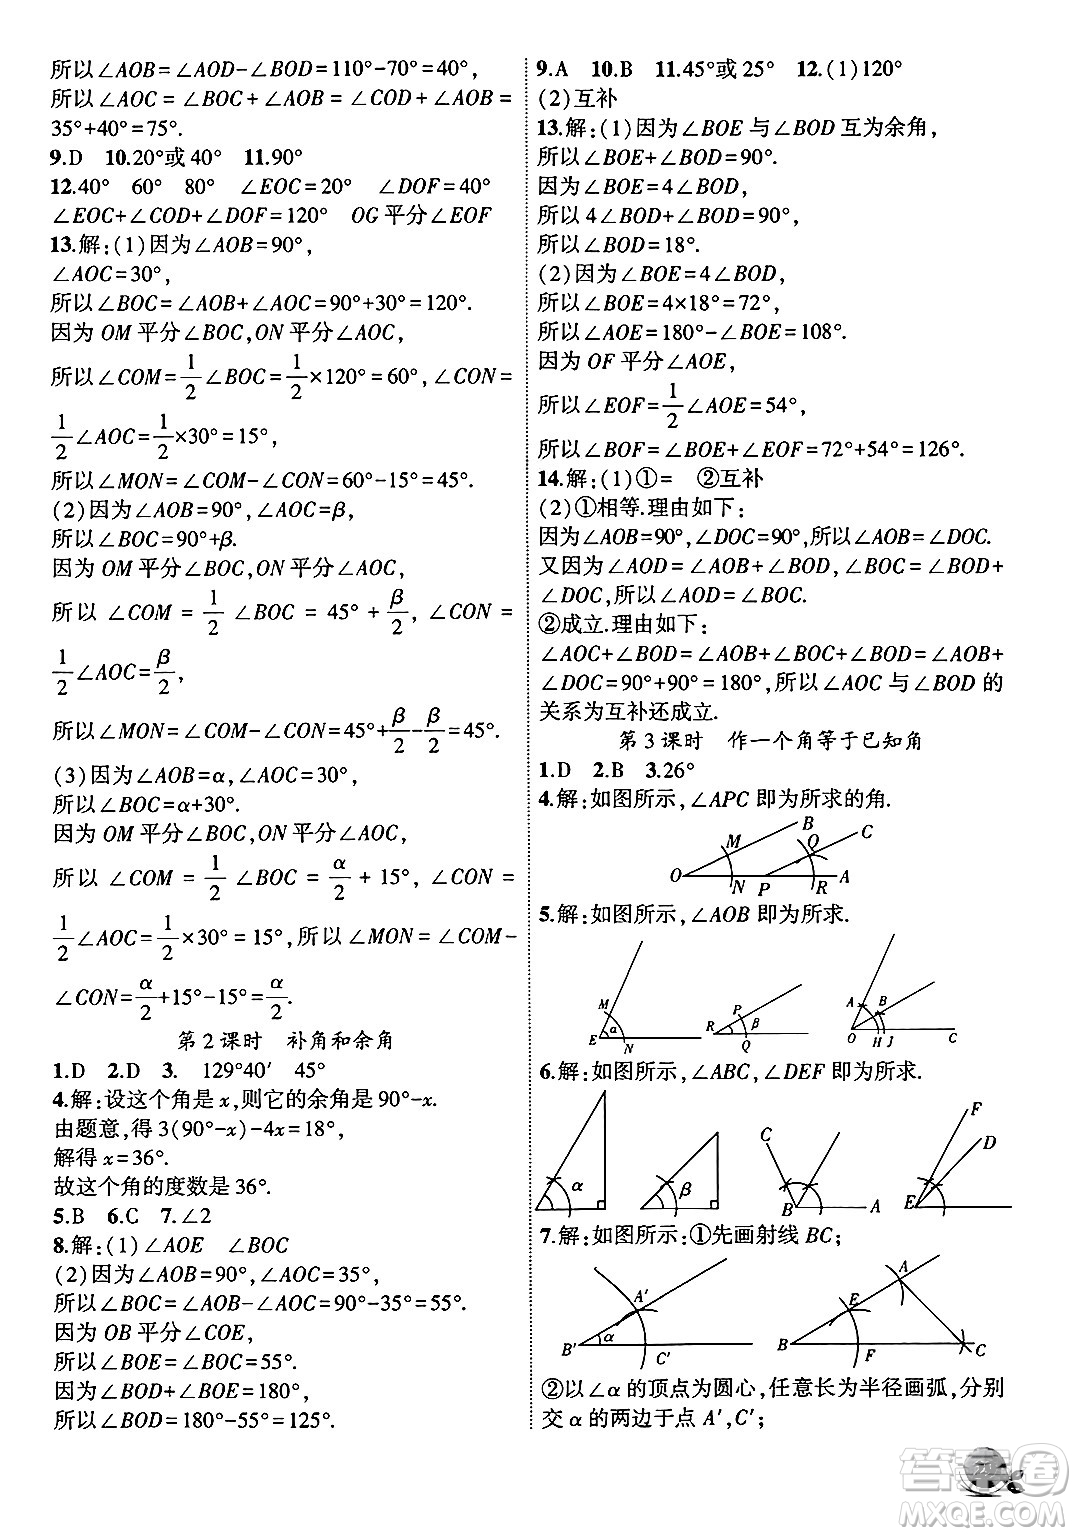 所以∠AOB=∠AOD-∠BOD=110°-70°=40°,
所以∠AOC=∠BOC+∠AOB=∠COD+∠AOB=
35°+40°=75°.
9.D 10.20°或40° 11.90°
12.40° 60° 80° ∠EOC=20° ∠DOF=40°
∠EOC+∠COD+∠DOF=120° OG平分∠EOF
13.解:(1)因为∠AOB=90°,
∠AOC=30°,
所以∠BOC=∠AOB+∠AOC=90°+30°=120°.
因为OM平分∠BOC,ON平分∠AOC,
所以∠COM=1/2∠BOC=1/2×120°=60°,∠CON=
1/2∠AOC=1/2×30°=15°,
所以∠MON=∠COM-∠CON=60°-15°=45°.
(2)因为∠AOB=90°,∠AOC=β,
所以∠BOC=90°+β.
因为OM平分∠BOC,ON平分∠AOC,
所以∠COM=1/2∠BOC=45°+β/2,∠CON=
1/2∠AOC=β/2,
所以∠MON=∠COM-∠CON=45°+β/2-β/2=45°.
(3)因为∠AOB=α,∠AOC=30°,
所以∠BOC=α+30°.
因为OM平分∠BOC,ON平分∠AOC,
所以∠COM=1/2∠BOC=α/2+15°,∠CON=
1/2∠AOC=1/2×30°=15°,所以∠MON=∠COM-
∠CON=α/2+15°-15°=α/2.
第2课时 补角和余角
1.D 2.D 3. 129°40′ 45°
4.解:设这个角是x,则它的余角是90°-x.
由题意,得3(90°-x)-4x=18°,
解得x=36°.
故这个角的度数是36°.
5.B 6.C 7.∠2
8.解:(1)∠AOE ∠BOC
(2)因为∠AOB=90°,∠AOC=35°,
所以∠BOC=∠AOB-∠AOC=90°-35°=55°.
因为OB平分∠COE,
所以∠BOE=∠BOC=55°.
因为∠BOD+∠BOE=180°,
所以∠BOD=180°-55°=125°.
9.A 10.B 11.45°或25° 12.(1)120°
(2)互补
13.解:(1)因为∠BOE与∠BOD互为余角,
所以∠BOE+∠BOD=90°.
因为∠BOE=4∠BOD,
所以4∠BOD+∠BOD=90°,
所以∠BOD=18°.
(2)因为∠BOE=4∠BOD,
所以∠BOE=4×18°=72°,
所以∠AOE=180°-∠BOE=108°.
因为OF平分∠AOE,
所以∠EOF=1/2∠AOE=54°,
所以∠BOF=∠BOE+∠EOF=72°+54°=126°.
14.解:(1)①= ②互补
(2)①相等.理由如下:
因为∠AOB=90°,∠DOC=90°,所以∠AOB=∠DOC.
又因为∠AOD=∠AOB+∠BOD,∠BOC=∠BOD+
∠DOC,所以∠AOD=∠BOC.
②成立.理由如下:
∠AOC+∠BOD=∠AOB+∠BOC+∠BOD=∠AOB+
∠DOC=90°+90°=180°,所以∠AOC与∠BOD的
关系为互补还成立.
第3课时 作一个角等于已知角
1.D 2.B 3.26°
4.解:如图所示,∠APC即为所求的角.
B
M Q C
O N P R A
5.解:如图所示,∠AOB即为所求.
M P A B
E α N R β Q O H J C
6.解:如图所示,∠ABC,∠DEF即为所求.
F
C D
α β B A E
7.解:如图所示:①先画射线BC;
A
A′ E
B′ α C′ B F C
②以∠α的顶点为圆心,任意长为半径画弧,分别
交α的两边于点A′,C′;
答案圈
MXQE.COM